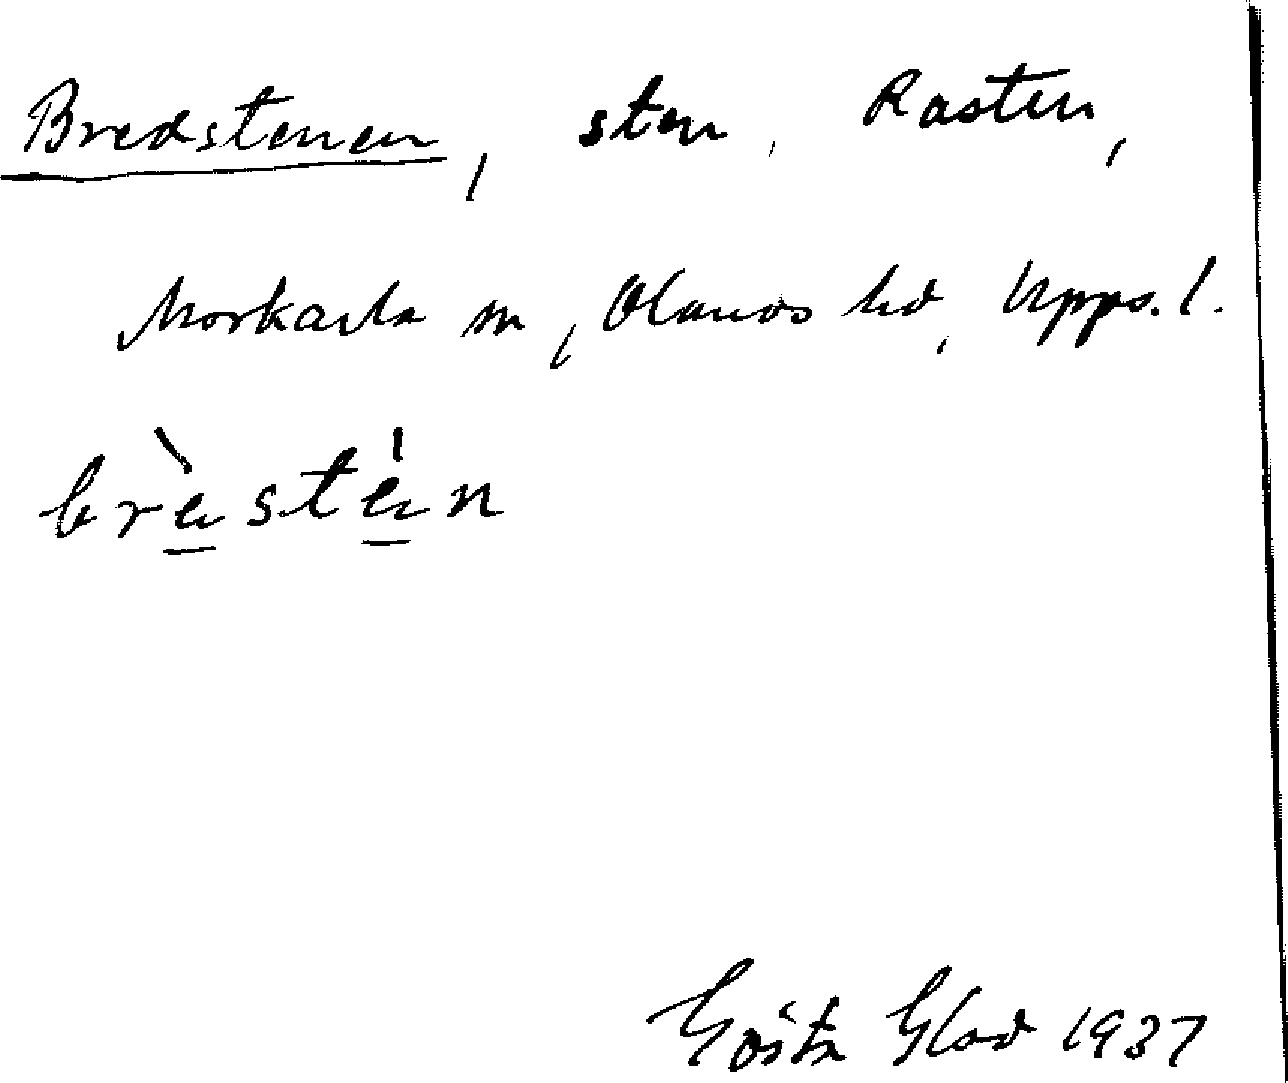 Bredstenen, sten, Rasten,
Morkarla sn, Olands hd, Upps. l.
brè̱sté̱n
Gösta Glad 1937